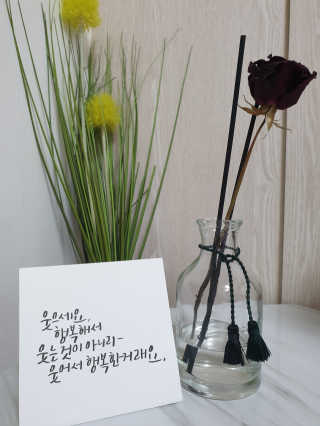 웃으세요,
행복해서
웃는 것이 아니라-
웃어서 행복한거래요.